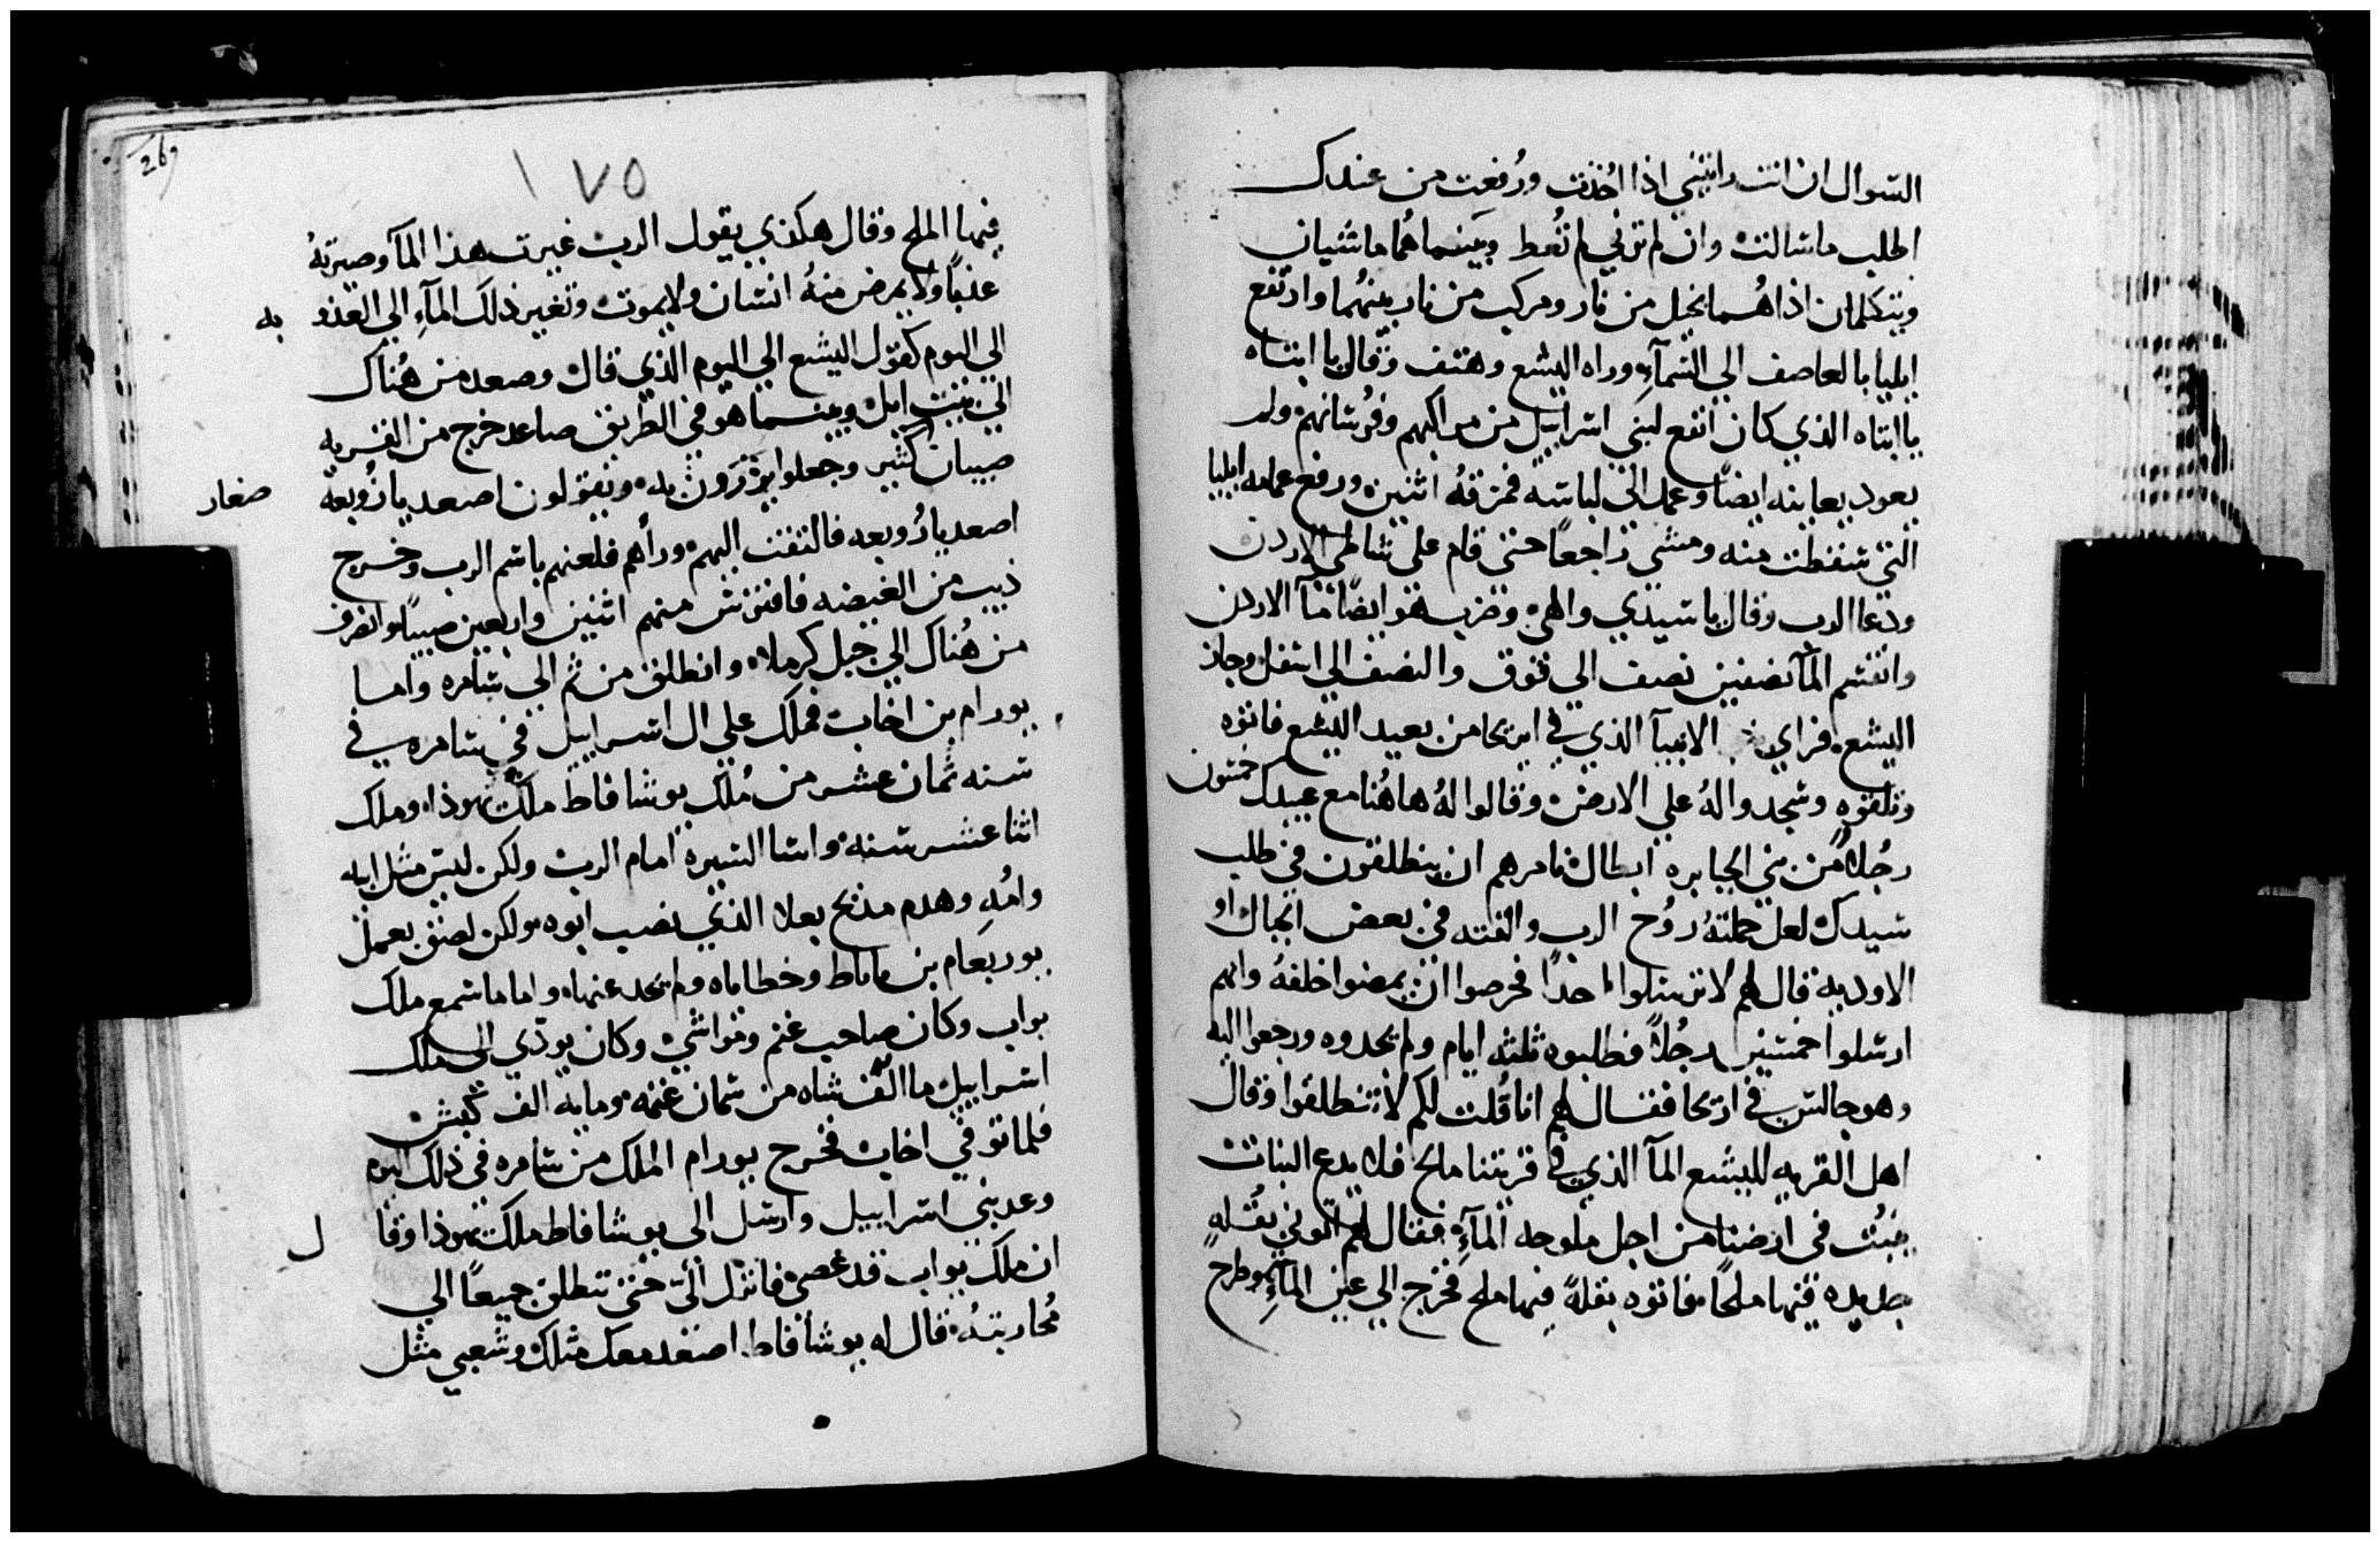 السوال ان انت رايتني اذا اخذت ورُفعت من عندك
اطلب ما سالت وان لم تراني لم تُعط وبينما هُما ماشيان
ويتكلمان اذا هما بخيل من نار ومركب من نار بينهُما وارتفع
ايليا بالعاصف الي السمآءِ وراه اليشع وهتف وقال يا ابتاه
يا ابتاه الذي كان انفع لبني اسراييل من مراكبهم وفرسانهم ولم
يعود يعاينه ايضاً وعمد الي لباسه فمزقهُ اثنين ورفع عمامه ايليا
التي سقطت منه ومشي راجعاً حتي قام علي شاطي الاردن
ودعا الرب وقال يا سيدي والهي وضرب هو ايضاً مآ الاردن
وانقسم المآ نصفين نصف الي فوق والنصف الي اسفل وجاز
اليشع فراي الانبيآ الذي في اريحا من بعيد اليشع فاتوه
وتلقوه وسجدوا لهُ علي الارض وقالوا لهُ هاهُنا مع عبيدك خمسون
رجُلاً من بني الجبابره ابطال فامرهم ان ينطلقون في طلب
سيدك لعل حملتهُ روُح الرب والقته في بعض الجبال او
الاوديه قال لهم لا ترسلوا احداً فحرصوا ان يمضوا خلفهُ وانهم
ارسلوا خمسين رجُلاً فطلبوه ثلثه ايام ولم يجدوه ورجعوا اليه
وهو جالس في اريحا فقال لهم انا قُلت لكم لا تنطلقوا وقال
اهل القريه لليشع المآ الذي في قريتنا مالح فلا يدع النبات
ينبُت في ارضنا من اجل ملوحه المآءِ فقال لهم اتوني بقُله
جديده فيها ملحاً فاتوه بقلهً فيها ملح فخرج الي عين المآءِ وطرح
١٧٥
269
فيها الملح وقال هكذي يقول الرب غيرت هذا المآ وصيرتهُ
عذباً ولا يمرض منهُ انسان ولا يموت وتغير ذلك المآءِ الي العذو به
الي اليوم كقول اليشع الي اليوم الذي قال وصعد من هُناك
الي بيت ايل وبينما هو في الطريق صاعد خرج من القريه
صبيان كثير وجعلوا يزرَون به ويقولون اصعد يا زُوبعة صغار
اصعد يا زُوبعه فالتفت اليهم وراُهم فلعنهم باسم الرب وخرج
ذيب من الغيضه فافترش منهم اثنين واربعين صبياً وانصرف
من هُناك الي جبل كرملا وانطلق من ثم الي شامره واما
يورام بن اخاب فملك علي ال اسراييل في شامره في
سنه ثمان عشر من مُلك يوشافاط ملك يهوذا وملك
اثنا عشر سنه واسا السيره امام الرب ولكن ليس مثل ابيه
وامُه وهدم مذبح بعلا الذي نصب ابوه ولكن لصق بعمل
يوربعام بن ناباط وخطاياه ولم يحد عنها واما ماشمع ملك
بواب وكان صاحب غنم ومواشي وكان يودّي الي ملك
اسراييل ما الف شاه من سمان غنمه ومايه الف كبش
فلما توفي اخاب فخرج يورام الملك من شامره في ذلك اليوم
وعد بني اسراييل وارسل الي يوشافاط ملك يهوذا وقا ل
ان ملك بواب قد عصي فانزل اليّ حتي ننطلق جميعاً الي
مُحاربتهُ قال له يوشافاط اصعد معك مثلك وشعبي مثل